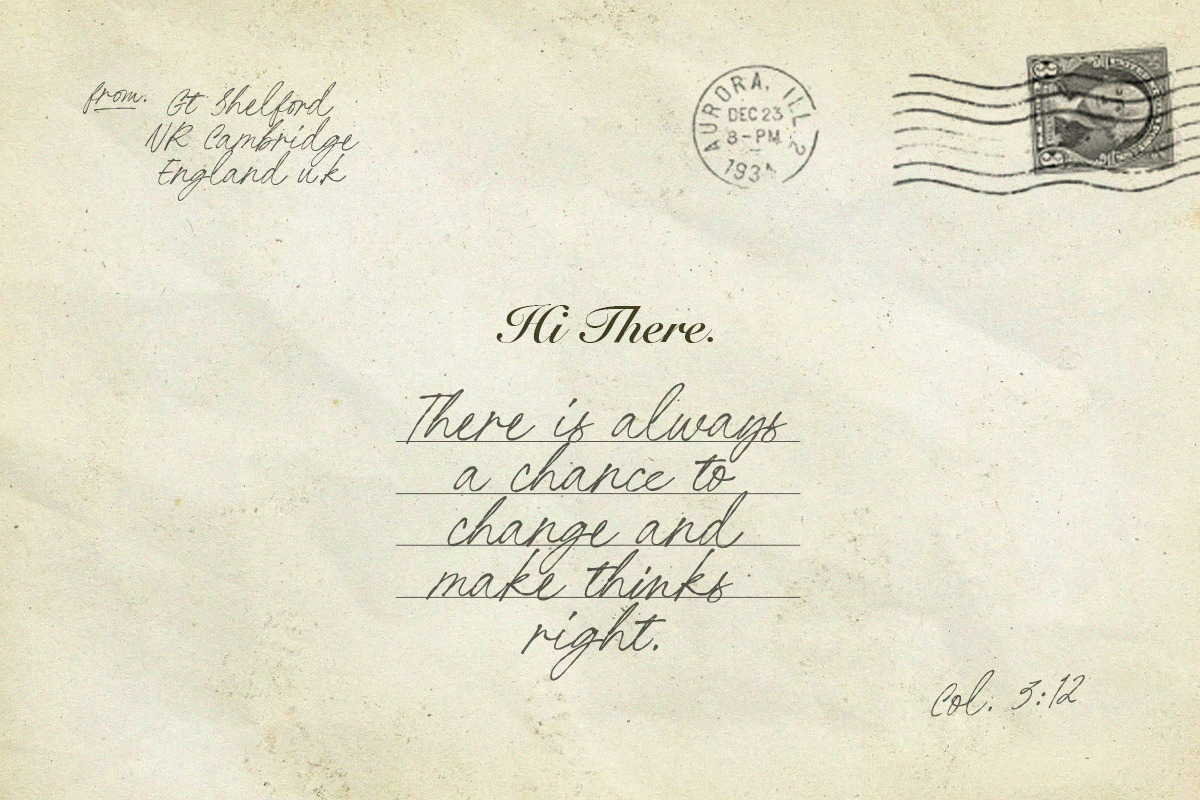 from. Gt Shelford
NR Cambridge
England u.k
AURORA, ILL. 2
DEC 23
8-PM
1934
Hi There.
There is always
a chance to
change and
make thinks
right.
Col. 3:12